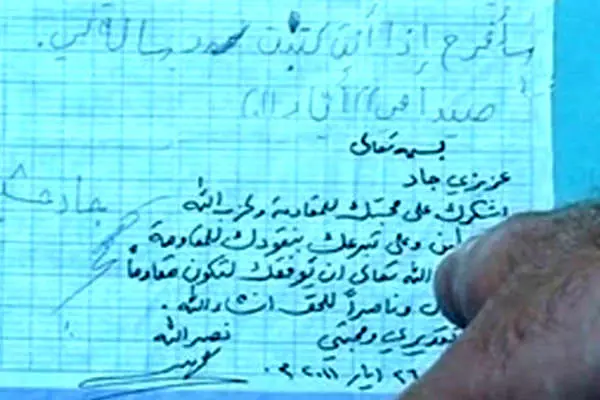 سأفرح إذا أنت كتبت رسالة لي.
صيدا في ١١ أيار
بسمه تعالى
عزيزي جاد
اشكرك على محبتك للمقاومة ولحزب الله
وعلى تبرعك بنقودك للمقاومة
الله تعالى ان يوفقك لتكون مقاوماً
وناصراً للحق انشاءالله.
تقديري ومحبتي
نصرالله
جاد
٢٦ ايار ٢٠١١ م